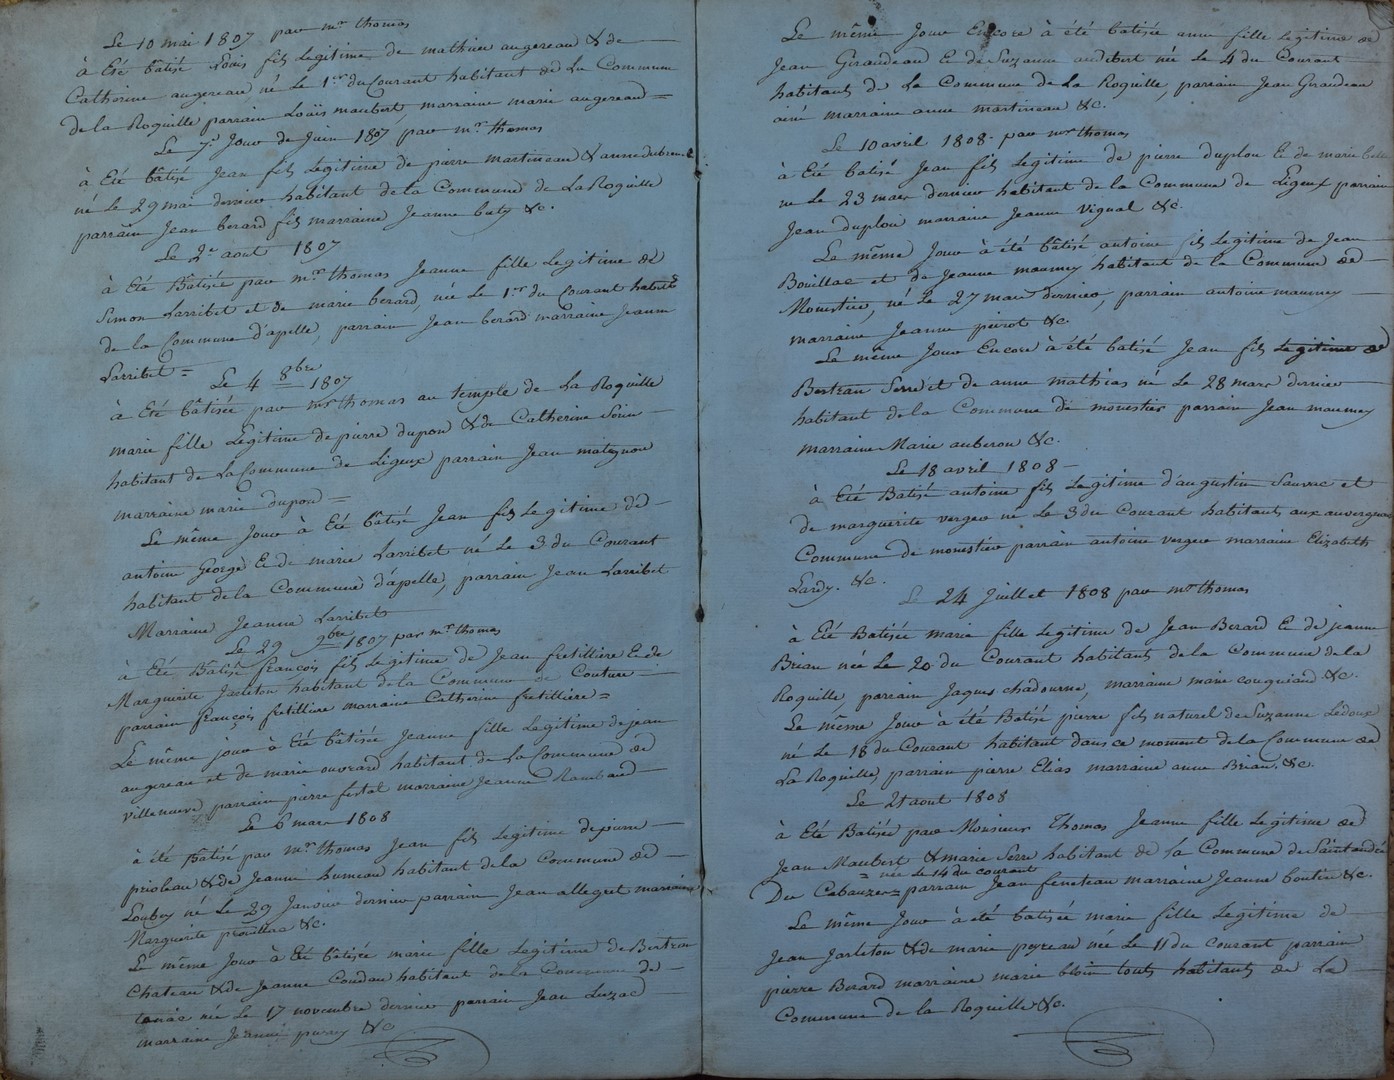 Le 10 mai 1807 par mr thomas
à Eté bâtisé Loüis fils Legitime de mathieu augereau & de
Catherine augereau né Le 1.er du Courant habitant de La Commune
de la Roquille parrain Loüis maubert, marraine marie augereau =
Le 7.e Jour de Juin 1807, par mr thomas
à Eté bâtisé Jean fils Legitime de pierre martineau & anne
né Le 29 mai dernier habitant de la Commune de La Roquille
parrain Jean berard fils marraine Jeanne buty &c.
Le 2e aout 1807
à Eté Bâtisée par mr thomas Jeanne fille Legitime de
Simon Larribet et de marie berard, née Le 1.er du Courant habitants
de la Commune d'apelle, parrain Jean berard marraine Jeanne
Larribet =
Le 4 8bre 1807
à Eté bâtisée par mr thomas au temple de La Roquille
marie fille Légitime de pierre dupon & de Catherine
habitant de La Commune de Ligeux parrain Jean matignon
marraine marie dupon =
Le même Jour à Eté bâtisé Jean fils Legitime de
antoine George E de marie Larribet né Le 3 du Courant
habitant de la Commune d'apelle, parrain Jean Larribet
Marraine Jeanne Larribet
Le 29 9bre 1807 par mr thomas
à Eté Bâtisé françois fils Legitime de Jean fretillire E de
Marguerite Jarleton habitant de la Commune de Couture
parrain françois fretillire marraine Catherine fretillire =
Le même jour à Eté bâtisée Jeanne fille Legitime de jean
augereau et de marie ouvrard habitant de La Commune de
villeneuve parrain pierre festal marraine Jeanne Rambaud
Le 6 mars 1808
à été bâtisé par mr thomas Jean fils Legitime de pierre
prioleau & de Jeanne humeau habitant de la Commune de
Loubex né Le 29 Janvier dernier parrain Jean allegret marraine
Marguerite prouillac &c.
Le même Jour à Eté bâtisée marie fille Legitime de Bertran
Chateau & de Jeanne Coudau habitant de la Commune de
née Le 17 novembre dernier parrain Jean Luzac
marraine Jeanne &c
Le même Jour Encore à été batisée anne fille Legitime de
Jean Giraudeau E de Suzanne audibert née Le 4 du Courant
habitants de La Commune de La Roquille, parrain Jean Giraudeau
ainé marraine anne martineau &c.
Le 10 avril 1808. par mr thomas
à Eté batisé Jean fils Legitime de pierre duplou E de marie
né Le 23 mars dernier habitant de la Commune de Ligeux parrain
Jean duplou marraine Jeanne vignal &c.
Le même Jour à été bâtisé antoine fils Legitime de Jean
Bouillac et de Jeanne maumey habitant de la Commune de
Monestier, né Le 27 mars dernier, parrain antoine maumey
marraine Jeanne peirot &c
Le même Jour Encore à été batisé Jean fils Legitime de
Bertran Serre et de anne mathias né Le 28 mars dernier
habitant de la Commune de monestier parrain Jean maumey
marraine Marie auberou &c.
Le 18 avril 1808
à Eté Batisé antoine fils Legitime d'augustin Sauvac et
de marguerite verger né Le 3 du Courant habitants aux auvergnas
Commune de monestier parrain antoine verger marraine Elizabeth
Lardy. &c.
Le 24 Juillet 1808 par mr thomas
à Eté Batisée marie fille Legitime de Jean Berard E de jeanne
Brian née Le 20 du Courant habitants de la Commune de la
Roquille, parrain Jaques chadourne, marraine marie couguiard &c.
Le même Jour à été Batisé pierre fils naturel de Suzanne Ledoux
né Le 18 du Courant habitant dans ce moment de la Commune de
La Roquille, parrain pierre Elias marraine anne Brian. &c.
Le 21 aout 1808
à Eté Batisée par Monsieur Thomas Jeanne fille Legitime de
Jean Maubert & marie Serre habitant de la Commune de Saint andré
= née Le 14 du courant
Du Cabauzer = parrain Jean feneteau marraine Jeanne boutin &c.
Le même Jour à été batisée marie fille Legitime de
Jean Jarleton & de marie peyreau née Le 11 du Courant parrain
pierre Berard marraine marie bloin touts habitants de La
Commune de la Roquille &c.